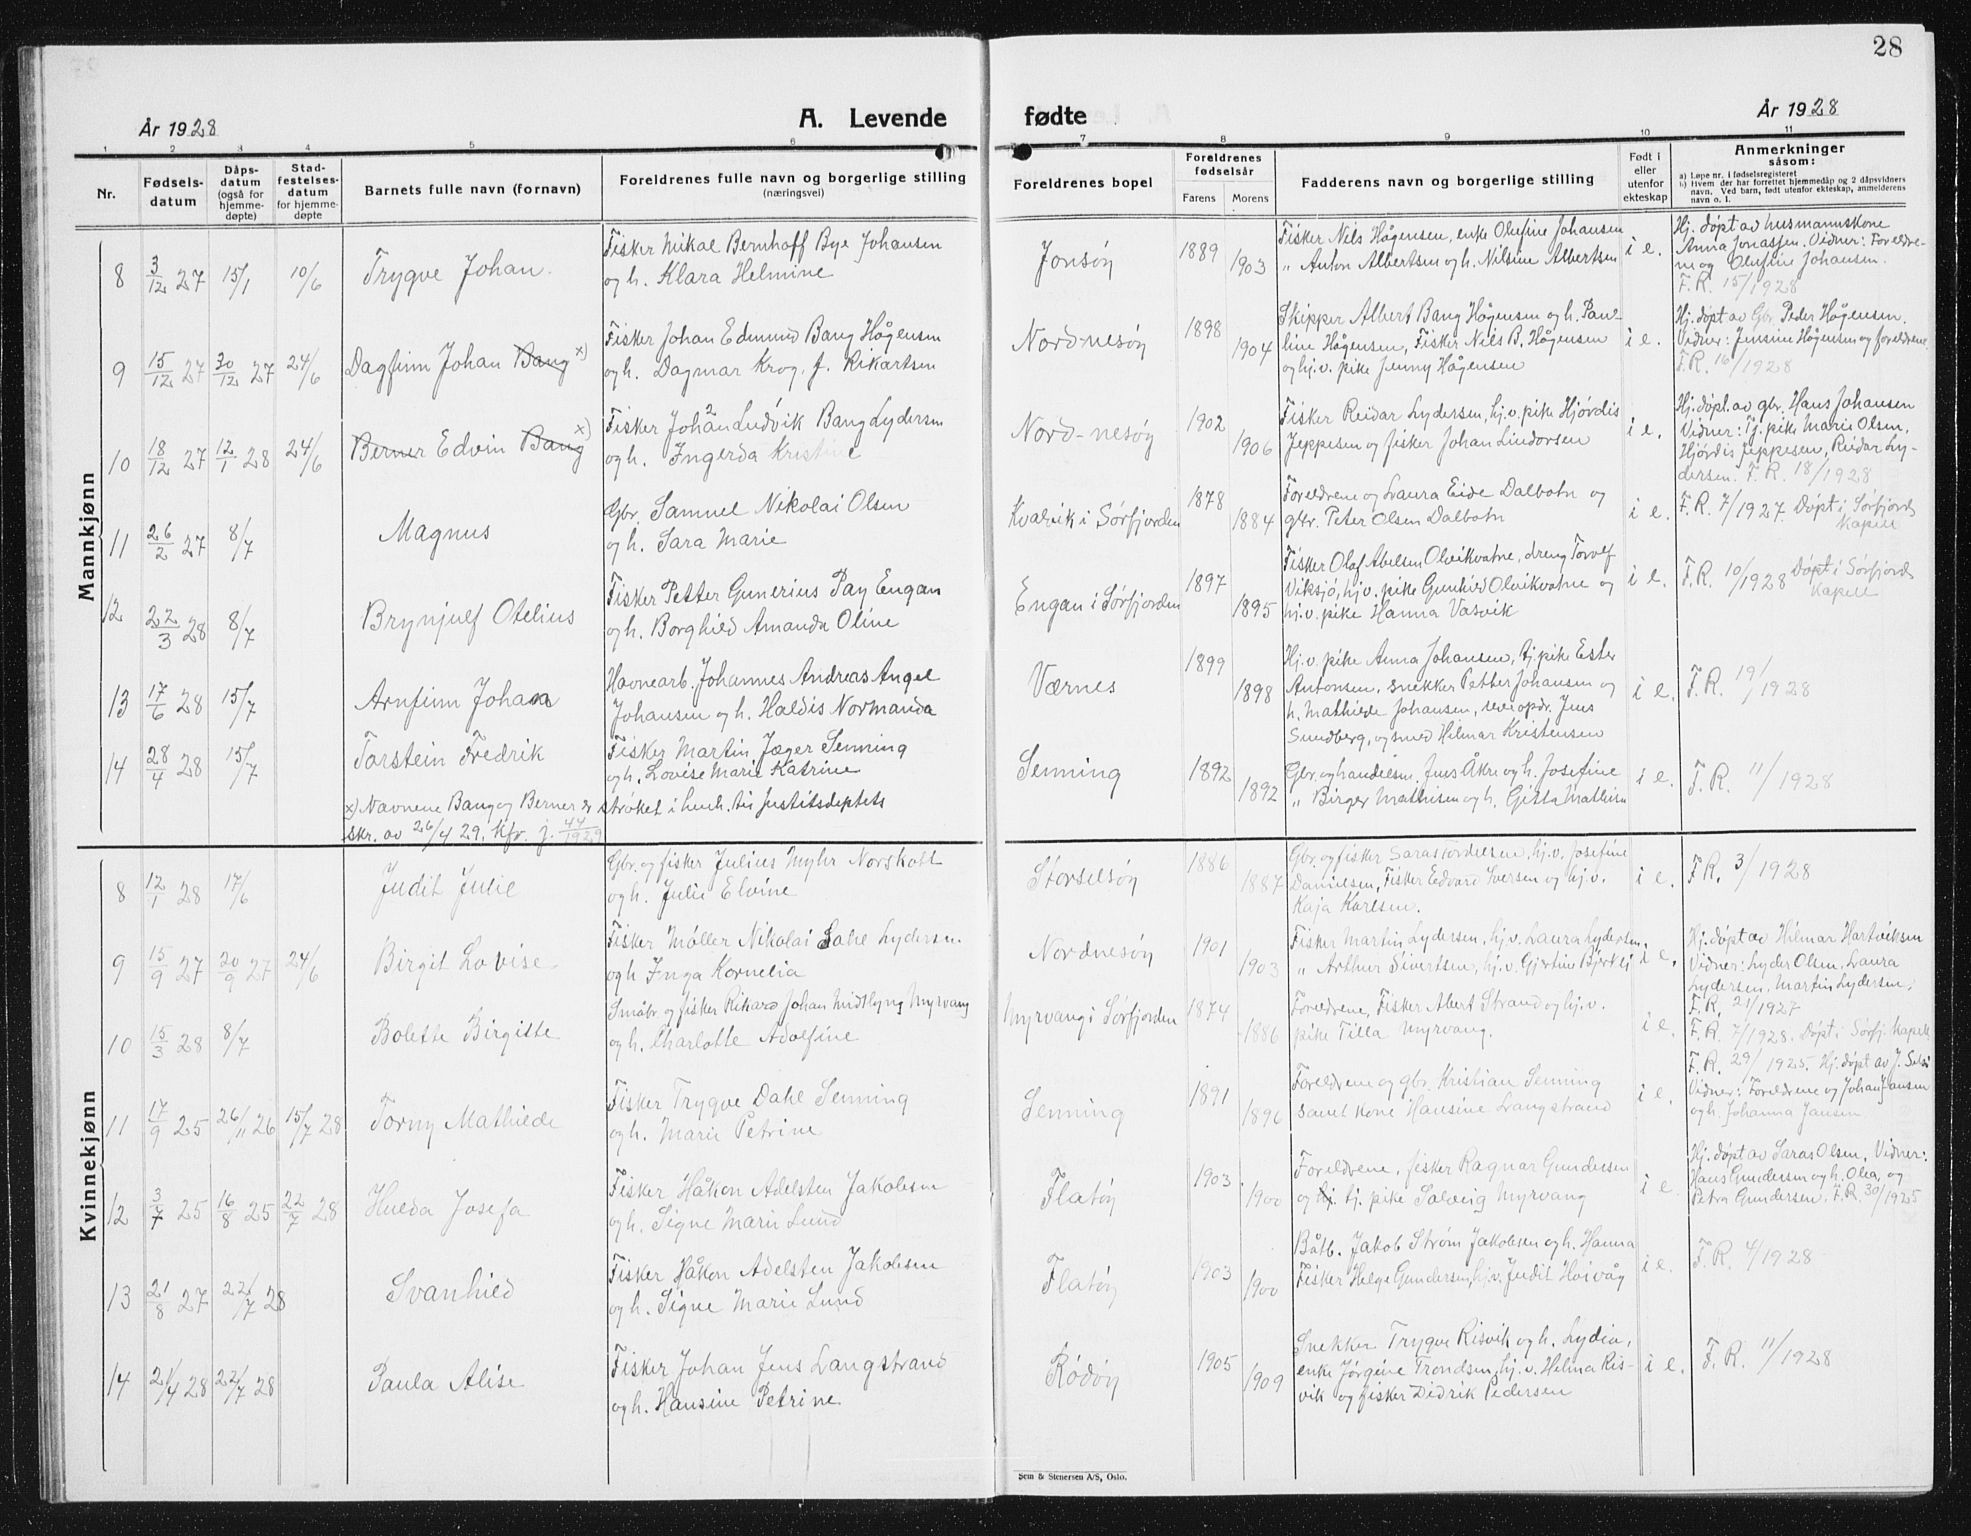 28
År 1928
A. Levende fødte
År 1928
1 2 3 4 5 6 7 8 9 10 11
Nr.
Fødsels-
datum
Dåps-
datum
(også for
hjemme-
døpte)
Stad-
festelses-
datum
for hjemme-
døpte
Barnets fulle navn (fornavn)
Foreldrenes fulle navn og borgerlige stilling
(næringsvei)
Foreldrenes bopel
Foreldrenes
fødselsår
Farens Morens
Fadderens navn og borgerlige stilling
Født i
eller
utenfor
ekteskap
Anmerkninger
såsom:
a) Løpe nr. i fødselsregisteret
b) Hvem der har forrettet hjemmedåp og 2 dåpsvidners
navn. Ved barn, født utenfor ekteskap, anmelderens
navn o. l.
Mannkjønn
8 3/12 27 15/1 10/6 Trygve Johan
Fisker Mikal Bernhoff Bye Johansen
og h. Klara Helmine
Jonsøy 1889 1903
Fisker Nils Hågensen, enke Olufine Johansen
" Anton Albertsen og h. Nilsine Albertsen
i e.
Hj. døpt av husmannskone
Anna Jonassen. Vidner: Foreldre-
ne og Olufine Johansen.
F.R. 15/1928
9 15/12 27 30/12 27 24/6 Dagfinn Johan Bang x)
Fisker Johan Edmund Bang Hågensen
og h. Dagmar Krog, f. Rikartsen
Nordnesøy 1898 1904
Skipper Albert Bang Hågensen og h. Pau-
line Hågensen, Fisker Nils B. Hågensen
og hj.v. pike Jenny Hågensen
i e.
Hj. døpt av Gbr Peder Hågensen.
Vidner: Jensine Hågensen og foreldrene.
F.R. 16/1928
10 18/12 27 12/1 28 24/6 Berner Edvin Bang x)
Fisker Johan Ludvik Bang Lydersen
og h. Ingerda Kristine
Nord-nesøy 1902 1906
Fisker Reidar Lydersen, hj.v. pike Hjørdis
Jeppesen og fisker Johan Lindorsen
i e.
Hj. døpt. av gbr. Hans Johansen
Vidner: Tj. pike Marie Olsen,
Hjørdis Jeppesen, Reidar Ly-
dersen. F.R. 18/1928
11 26/2 27 8/7 Magnus
Gbr. Samuel Nikolai Olsen
og h. Sara Marie
Kvalvik i Sørfjorden 1878 1884
Foreldrene og Laura Eide Dalbotn og
gbr. Peter Olsen Dalbotn
i e.
F.R. 7/1927. Døpt i Sørfjord
Kapell
12 22/3 28 8/7 Brynjulf Otelius
Fisker Petter Gunerius Pay Engan
og h. Borghild Amanda Oline
Engan i Sørfjorden 1897 1895
Fisker Olaf Abelsen Olvikvatne, dreng Torolf
Viksjø, hj.v. pike Gunhild Olvikvatne og
hj.v. pike Hanna Vasvik
i e.
F.R. 10/1928 Døpt i Sørfjord
Kapell
13 17/6 28 15/7 Arnfinn Johan
Havnearb. Johannes Andreas Angel
Johansen og h. Haldis Normanda
Værnes 1899 1898
Hj.v. pike Anna Johansen, tj.pike Ester
Antonsen, snekker Petter Johansen og
h. Mathilde Johansen, reveopdr. Jens
Sundberg, og smed Hilmar Kristensen
i e.
F.R. 19/1928
14 28/4 28 15/7 Torstein Fredrik
Fisker Martin Jæger Senning
og h. Lovise Marie Katrine
Senning 1892 1892
Gbr. og handelsm. Jens Åkre og h. Josefine
" Birger Mathisen og h. Gitta Mathisen
i e.
F.R. 11/1928
x) Navnene Bang og Berner er strøket i henh. til Justitsdeptets
skr. av 26/4 29. Kfr. j. 44/1929
Kvinnekjønn
8 12/1 28 17/6 Judit Julie
Gbr. og fisker Julius Myhr Norskott
og h. Julie Elvine
Storselsøy 1886 1887
Gbr. og fisker Saras Tordelsen, hj.v. Josefine
Danielsen, Fisker Edvard Iversen og hj.v.
Kaja Karlsen.
i e.
F.R. 3/1928
9 15/9 27 20/9 27 24/6 Birgit Lovise
Fisker Møller Nikolai Dahl Lydersen
og h Inga Kornelia
Nordnesøy 1901 1903
Fisker Martin Lydersen, hj.v. Laura Lydersen,
" Arthur Sivertsen, hj.v. Gjertine Bjerkli
i e.
Hj. døpt av Hilmar Hartviksen
Vidner: Lyder Olsen, Laura
Lydersen, Martin Lydersen;
F.R. 21/1927
10 15/3 28 8/7 Bolette Birgitte
Småbr. og fisker Rikard Johan Midtlyng Myrvang
og h. Charlotte Adolfine
Myrvang i Sørfjorden 1874 1886
Foreldrene, Fisker Albert Strand og hj.v.
pike Tilla Myrvang.
i e.
F.R. 7/1928. Døpt i Sørfj. Kapell
11 17/9 25 26/11 26 15/7 28 Torny Mathilde
Fisker Trygve Dahl Senning
og h. Marie Petrine
Senning 1891 1896
Foreldrene og gbr. Kristian Senning
samt kone Hansine Langstrand
i e.
F.R. 29/1925. Hj. døpt av J.
Vidner: Foreldrene og Johan Jansen
og h. Johanna Jansen
12 3/7 25 16/8 25 22/7 28 Hulda Josefa
Fisker Håkon Adelsten Jakobsen
og h. Signe Marie Lund
Flatøy 1903 1900
Foreldrene, fisker Ragnar Gundersen
og tj. pike Solveig Myrvang
i e.
Hj. døpt av Saras Olsen, Vidner:
Hans Gundersen og h. Olea, og
Petra Gundersen. F.R. 30/1925
13 21/8 27 22/7 28 Svanhild
Fisker Håkon Adelsten Jakobsen
og h. Signe Marie Lund
Flatøy 1903 1900
Båtb. Jakob Strøm Jakobsen og h. Hanna
Fisker Helge Gundersen, hj.v. Judit Hoivåg
i e.
F.R. 4/1928
14 21/4 28 22/7 28 Paula Alise
Fisker Johan Jens Langstrand
og h. Hansine Petrine
Rödöy 1905 1909
Snekker Trygve Risvik og h. Lydia,
enke Jørgine Trondsen, hj.v. Helma Ris-
vik og fisker Didrik Pedersen
i e.
F.R. 11/1928
Sem & Stenersen A/S, Oslo.